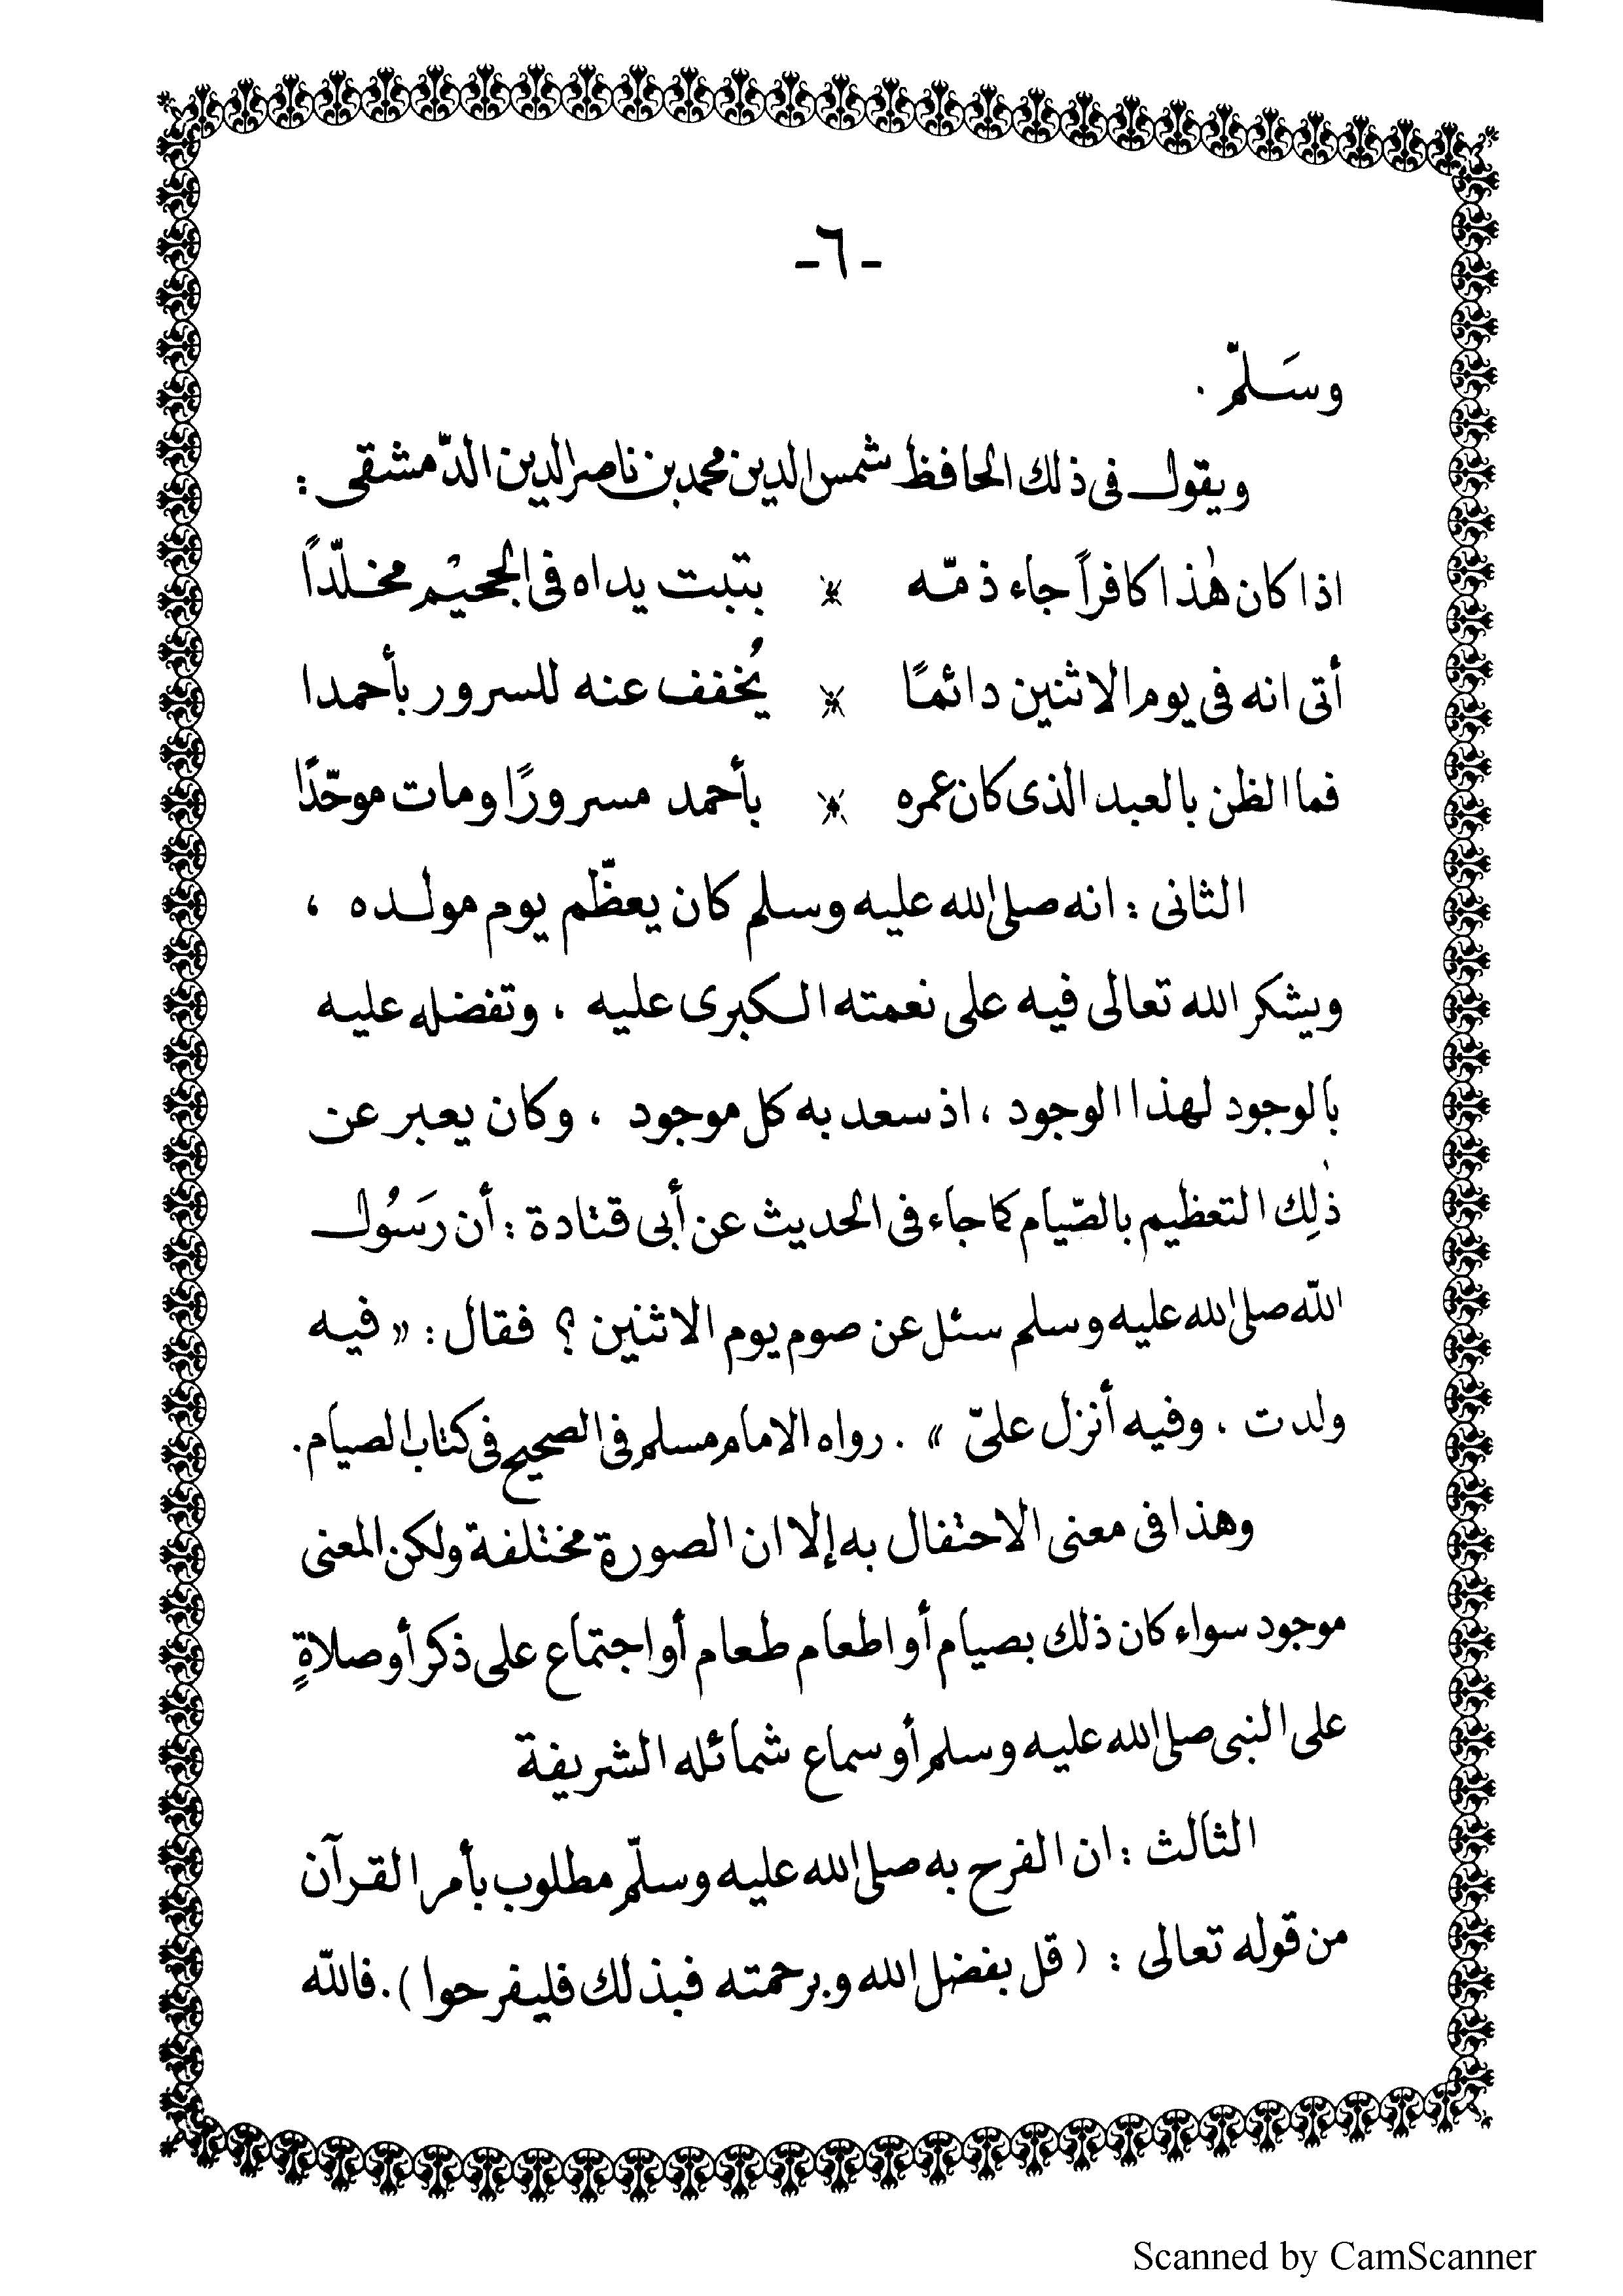 -٦-
وسَلمّ .
ويقول فى ذلك الحافظ شمس الدين محمد بن ناصر الدين الدّمشقى :
اذا كان هٰذا كافراً جاء ذمّه * بتبت يداه فى الجحيم مخلّدًا
أتى انه فى يوم الاثنين دائمًا * يُخفف عنه للسرور بأحمدا
فما الظن بالعبد الذى كان عمره * بأحمد مسرورًا ومات موحّدًا
الثانى : انه صلى الله عليه وسلم كان يعظّم يوم مولده ،
ويشكر الله تعالى فيه على نعمته الكبرى عليه ، وتفضله عليه
بالوجود لهذا الوجود ، اذ سعد به كل موجود ، وكان يعبر عن
ذٰلِك التعظيم بالصّيام كما جاء فى الحديث عن أبى قتادة : أن رَسُول
اللّه صلى الله عليه وسلم سئل عن صوم يوم الاثنين ؟ فقال : « فيه
ولدت . وفيه أنزل علىّ » . رواه الامام مسلم فى الصحيح فى كتاب الصيام .
وهذا فى معنى الاحتفال به إلا ان الصورة مختلفة ولكن المعنى
موجود سواء كان ذلك بصيام أو اطعام طعام أو اجتماع على ذكر أو صلاةٍ
على النبى صلى الله عليه وسلم أو سماع شمائله الشريفة
الثالث : ان الفرح به صلى الله عليه وسلّم مطلوب بأمر القرآن
من قوله تعالى : ( قل بفضل الله وبرحمته فبذلك فليفرحوا ) . فاللّه
Scanned by CamScanner